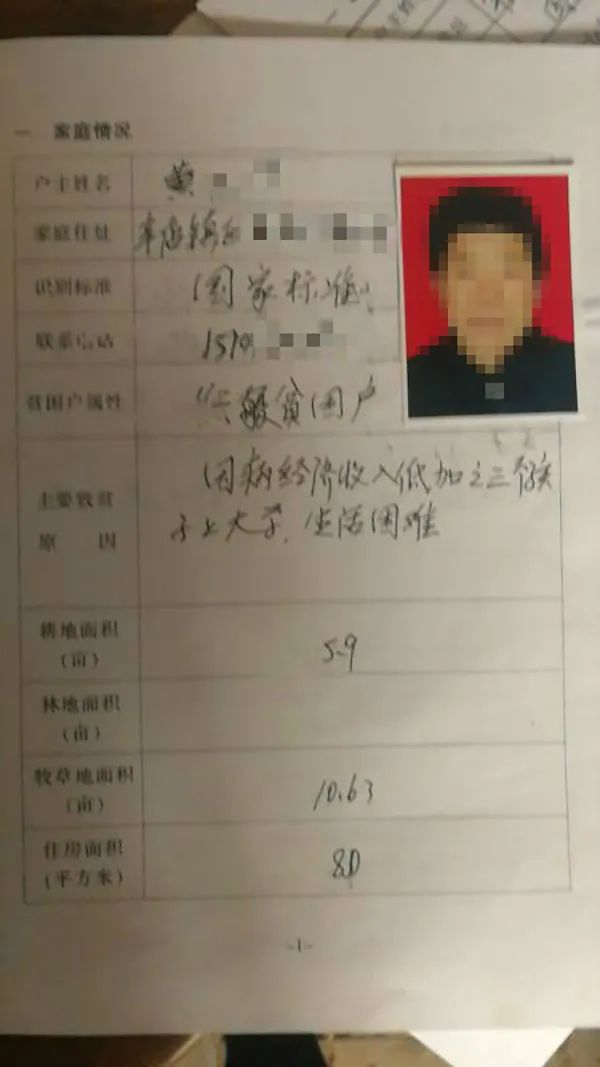 一 家庭情况
户主姓名 黄
家庭住址 车店镇
识别标准 国家标准
联系电话 1510
贫困户属性 一般贫困户
因病经济收入低加之三个孩
主要致贫
子上大学,生活困难
原 因
耕地面积
(亩) 5.9
林地面积
(亩)
牧草地面积
(亩) 10.63
住房面积
(平方米) 80
-1-